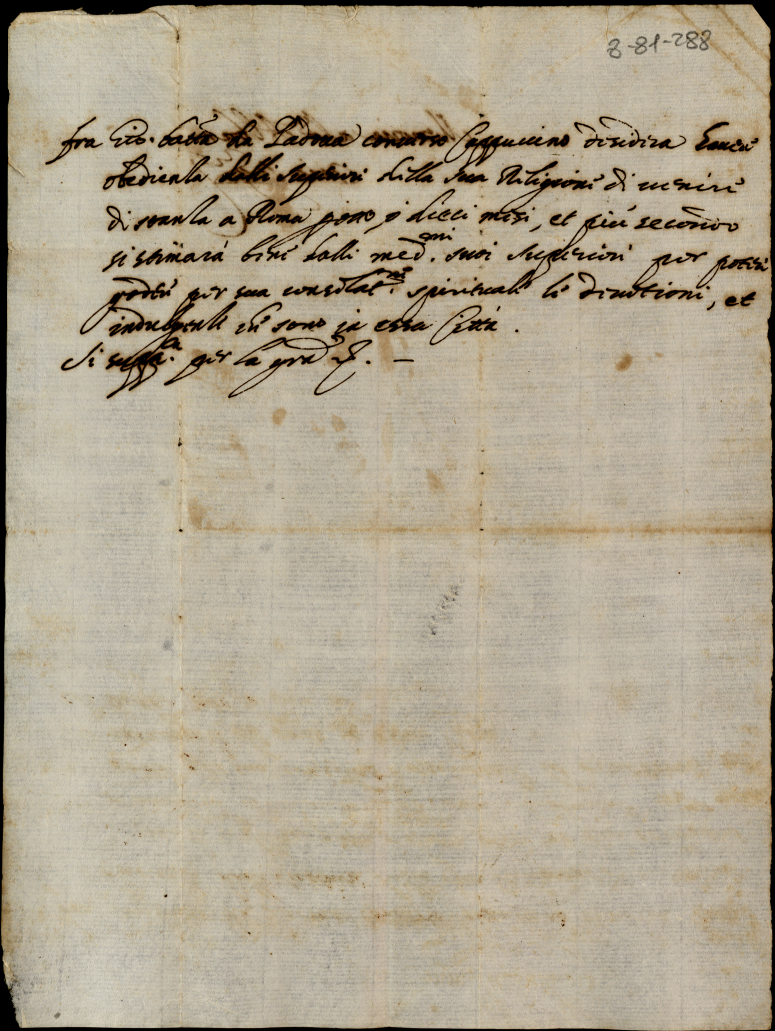 8-81-288
fra Gio. batta da Padoua conuerso Cappuccino desidera hauer
obedienza dalli Superiori della sua Religione di uenire
di stanza a Roma otto, o dieci mesi, et più secondo
si stimarà bene dalli med.mi suoi Superiori per poter
goder per sua consolat.ne spirituale le deuotioni, et
indulgenze che sono in essa Città.
Si supp.ca per la gra